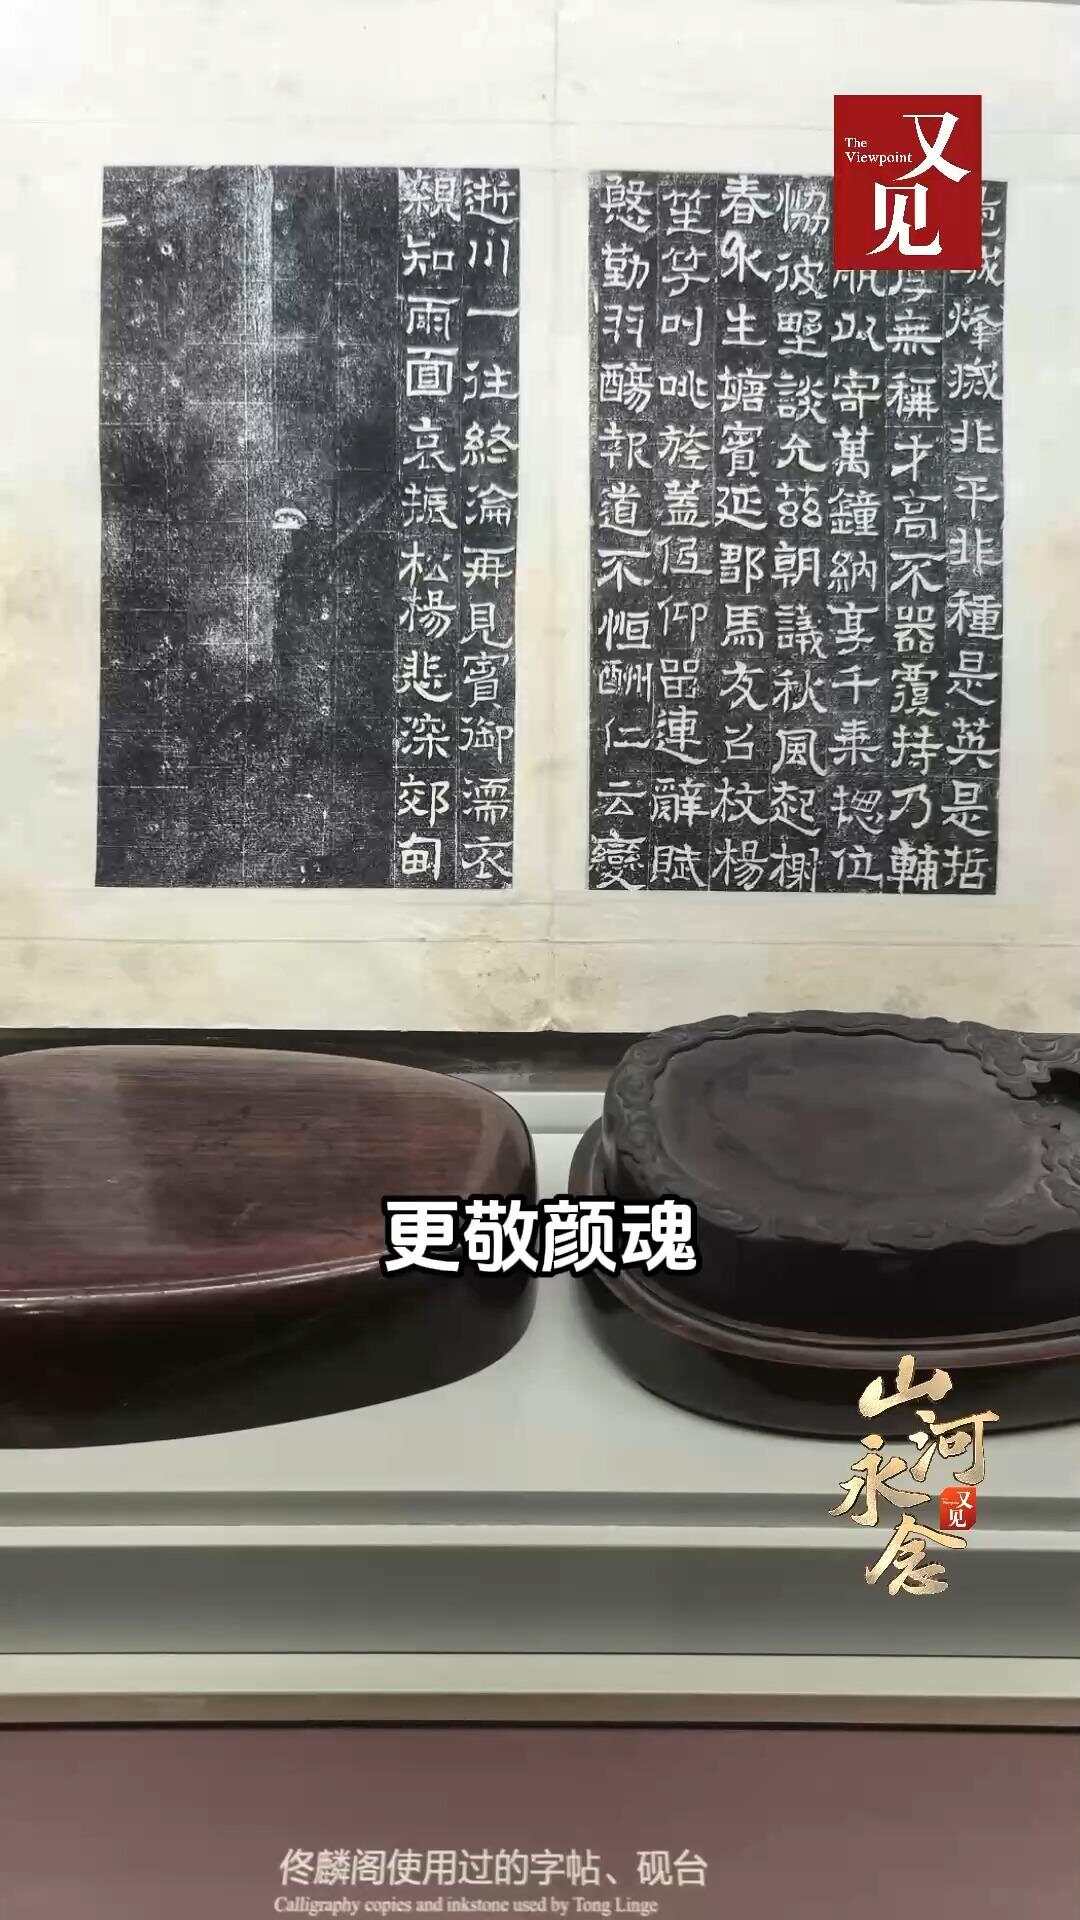 The
Viewpoint
又见
烽滅非平非種是英是哲
無稱才高不器覆持乃輔
以寄萬鐘納享千乘揔位
恊彼野談允茲朝議秋風起樹
春氷生塘賓延鄒馬友召枚楊
笙竽叫咷旌蓋低仰罍連辭賦
慇勤羽觴報道不恒酬仁云變
逝川一往終淪再見賓御濡衣
親知雨面哀振松楊悲深郊甸
更敬颜魂
山河永念
又见
佟麟阁使用过的字帖、砚台
Calligraphy copies and inkstone used by Tong Linge